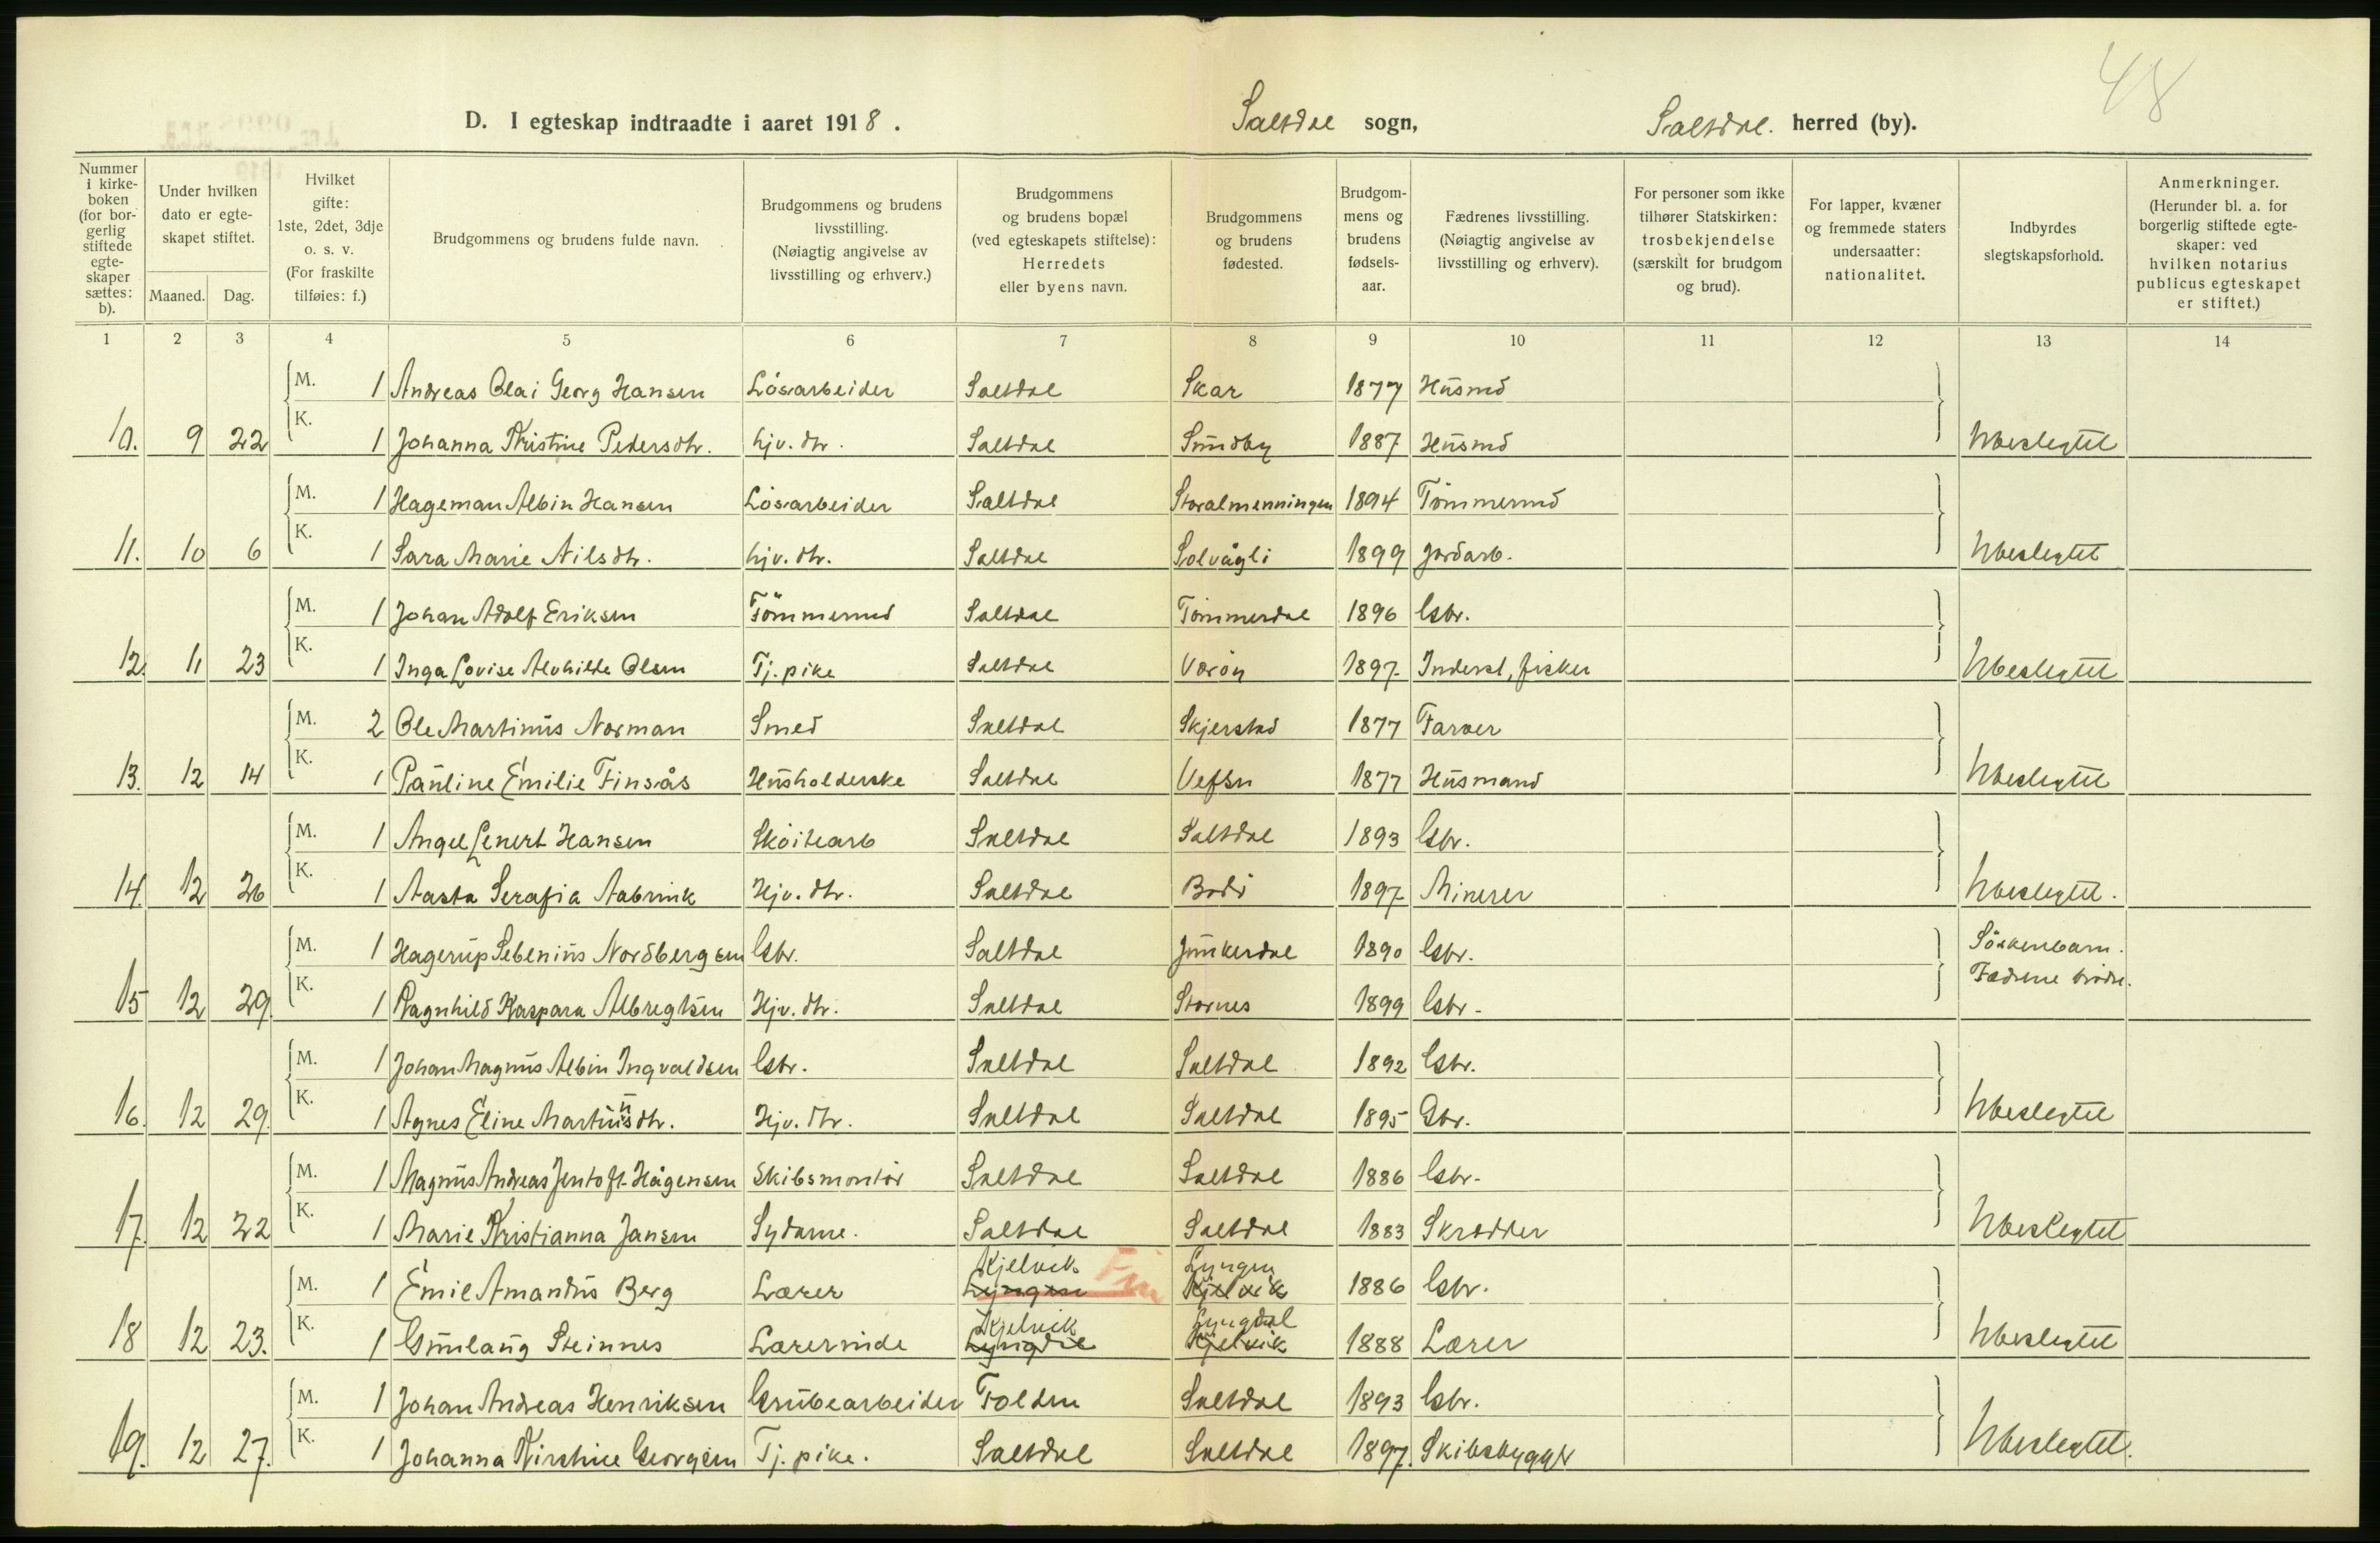 48
D. I egteskap indtraadte i aaret 1918. Saltdal sogn, Saltdal. herred (by).
Nummer i kirkeboken (for borgerlig stiftede egteskaper sættes: b). | Under hvilken dato er egteskapet stiftet. Maaned. Dag. | Hvilket gifte: 1ste, 2det, 3dje o. s. v. (For fraskilte tilføies: f.) | Brudgommens og brudens fulde navn. | Brudgommens og brudens livsstilling. (Nøiagtig angivelse av livsstilling og erhverv.) | Brudgommens og brudens bopæl (ved egteskapets stiftelse): Herredets eller byens navn. | Brudgommens og brudens fødested. | Brudgommens og brudens fødselsaar. | Fædrenes livsstilling. (Nøiagtig angivelse av livsstilling og erhverv). | For personer som ikke tilhører Statskirken: trosbekjendelse (særskilt for brudgom og brud). | For lapper, kvæner og fremmede staters undersaatter: nationalitet. | Indbyrdes slegtskapsforhold. | Anmerkninger. (Herunder bl. a. for borgerlig stiftede egteskaper: ved hvilken notarius publicus egteskapet er stiftet.)
1 2 3 4 5 6 7 8 9 10 11 12 13 14
M. 1 Andreas Olai Georg Hansen Lösarbeider Saltdal Skar 1877 Husmd
10. 9 22 K. 1 Johanna Kristine Pedersdtr. hjv. dtr. Saltdal Sundby 1887 Husmd Ubeslegtet
M. 1 Hageman Albin Hansen Lösarbeider Saltdal Storalmenningen 1894 Tömmermd
11. 10 6 K. 1 Sara Marie Nilsdtr. hjv. dtr. Saltdal Solvågli 1899 jordarb. Ubeslegtet
M. 1 Johan Adolf Eriksen Tömmermd Saltdal Tömmerdal 1896 Gbr.
12. 11 23 K. 1 Inga Lovise Alvhilde Olsen Tj. pike SaltdalVæröy 1897. Inderst, fisker Ubeslegtet
M. 2 Ole Martinus Norman Smed Saltdal Skjerstad 1877 Farver
13. 12 14 K. 1 Pauline Emilie Finsås Husholderske Saltdal Vefsn 1877 Husmand Ubeslegtet
M. 1 Angel Lenert Hansen Sköitearb Saltdal Saltdal 1893 Gbr.
14. 12 26 K. 1 Aasta Serafia Aabrink Hjv. dtr. Saltdal Bodö 1897 Minerer Ubeslegtet.
M. 1 Hagerup Sebenius Nordbergsen Gbr. Saltdal Junkerdal 1890 Gbr. Söskenbarn.
Fædrene brödre.
15 12 29. K. 1 Ragnhild Kaspara Albregtsen Hjv. dtr. Saltdal Stornes 1899 Gbr.
M. 1 Johan Magnus Albin Ingvaldsen Gbr. Saltdal Saltdal 1892 Gbr.
16. 12 29. K. 1 Agnes Eline Martinusdtr. Hjv. dtr. Saltdal Saltdal 1895 Gbr. Ubeslegtet
M. 1 Magnus Andreas Jentoft Hågensen Skibsmontör Saltdal Saltdal 1886 Gbr.
17. 12 22 K. 1 Marie Kristianna Jansen Sydame. Saltdal Saltdal 1883 Skrædder Ubeslegtet
Kjelvik Fin Lyngen
M. 1 Emil Amandus Berg Lærer Lyngen Kjelvik 1886 Gbr.
Kjelvik Lyngdal
18 12 23. K. 1 Gunlaug Steinnes Lærerinde Lyngdal Kjelvik 1888 Lærer Ubeslegtet
M. 1 Johan Andreas Henriksen Grubearbeider Folden Saltdal 1893 Gbr.
19. 12 27. K. 1 Johanna Kirstine Georgsen Tj. pike. Saltdal Saltdal 1897. Skibsbyggr Ubeslegtet.